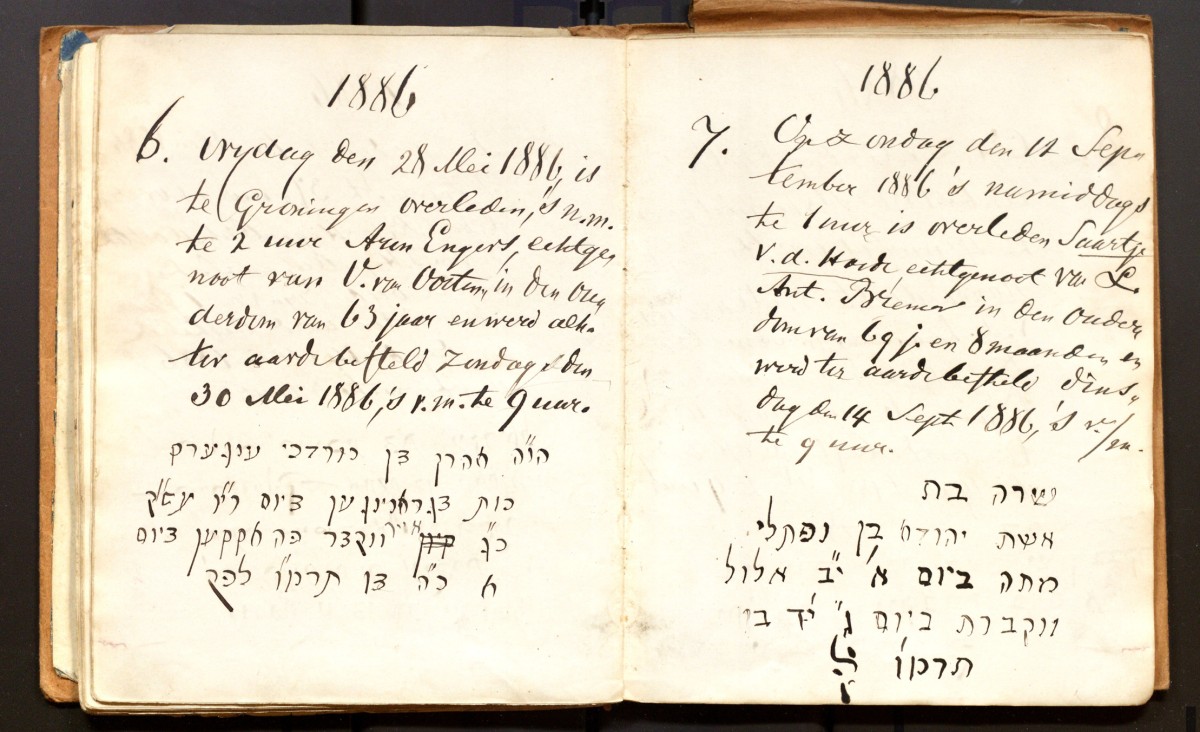 1886
6. Vrydag den 28 Mei 1886, is
te Groningen overleden, 's n.m.
te 2 uur Aron Engers, echtge„
noot van V. van Oosten, in den ou„
derdom van 63 jaar en werd alh.
ter aarde besteld Zondag den
30 Mei 1886, 's v.m. te 9 uur.
אהרן בן מרדכי
מת בגראנינגען ביום
כ"ג אייר ונקבר פה ביום
א כ"ה בו תרמ"ו לפק
1886
7. Op Zondag den 12 Sep„
tember 1886 's namiddags
te 1 uur is overleden Saartje
v. d. Horde echtgenoot van L.
Ant. Bremer in den ouder„
dom van 69 j. en 8 maanden en
werd ter aarde besteld dins„
dag den 14 Sept 1886, 's v./m.
te 9 uur.
שרה בת
אשת יהודא בן נפתלי
מתה ביום א' י"ב אלול
ונקברת ביום ג' י"ד בו
תרמ"ו ל